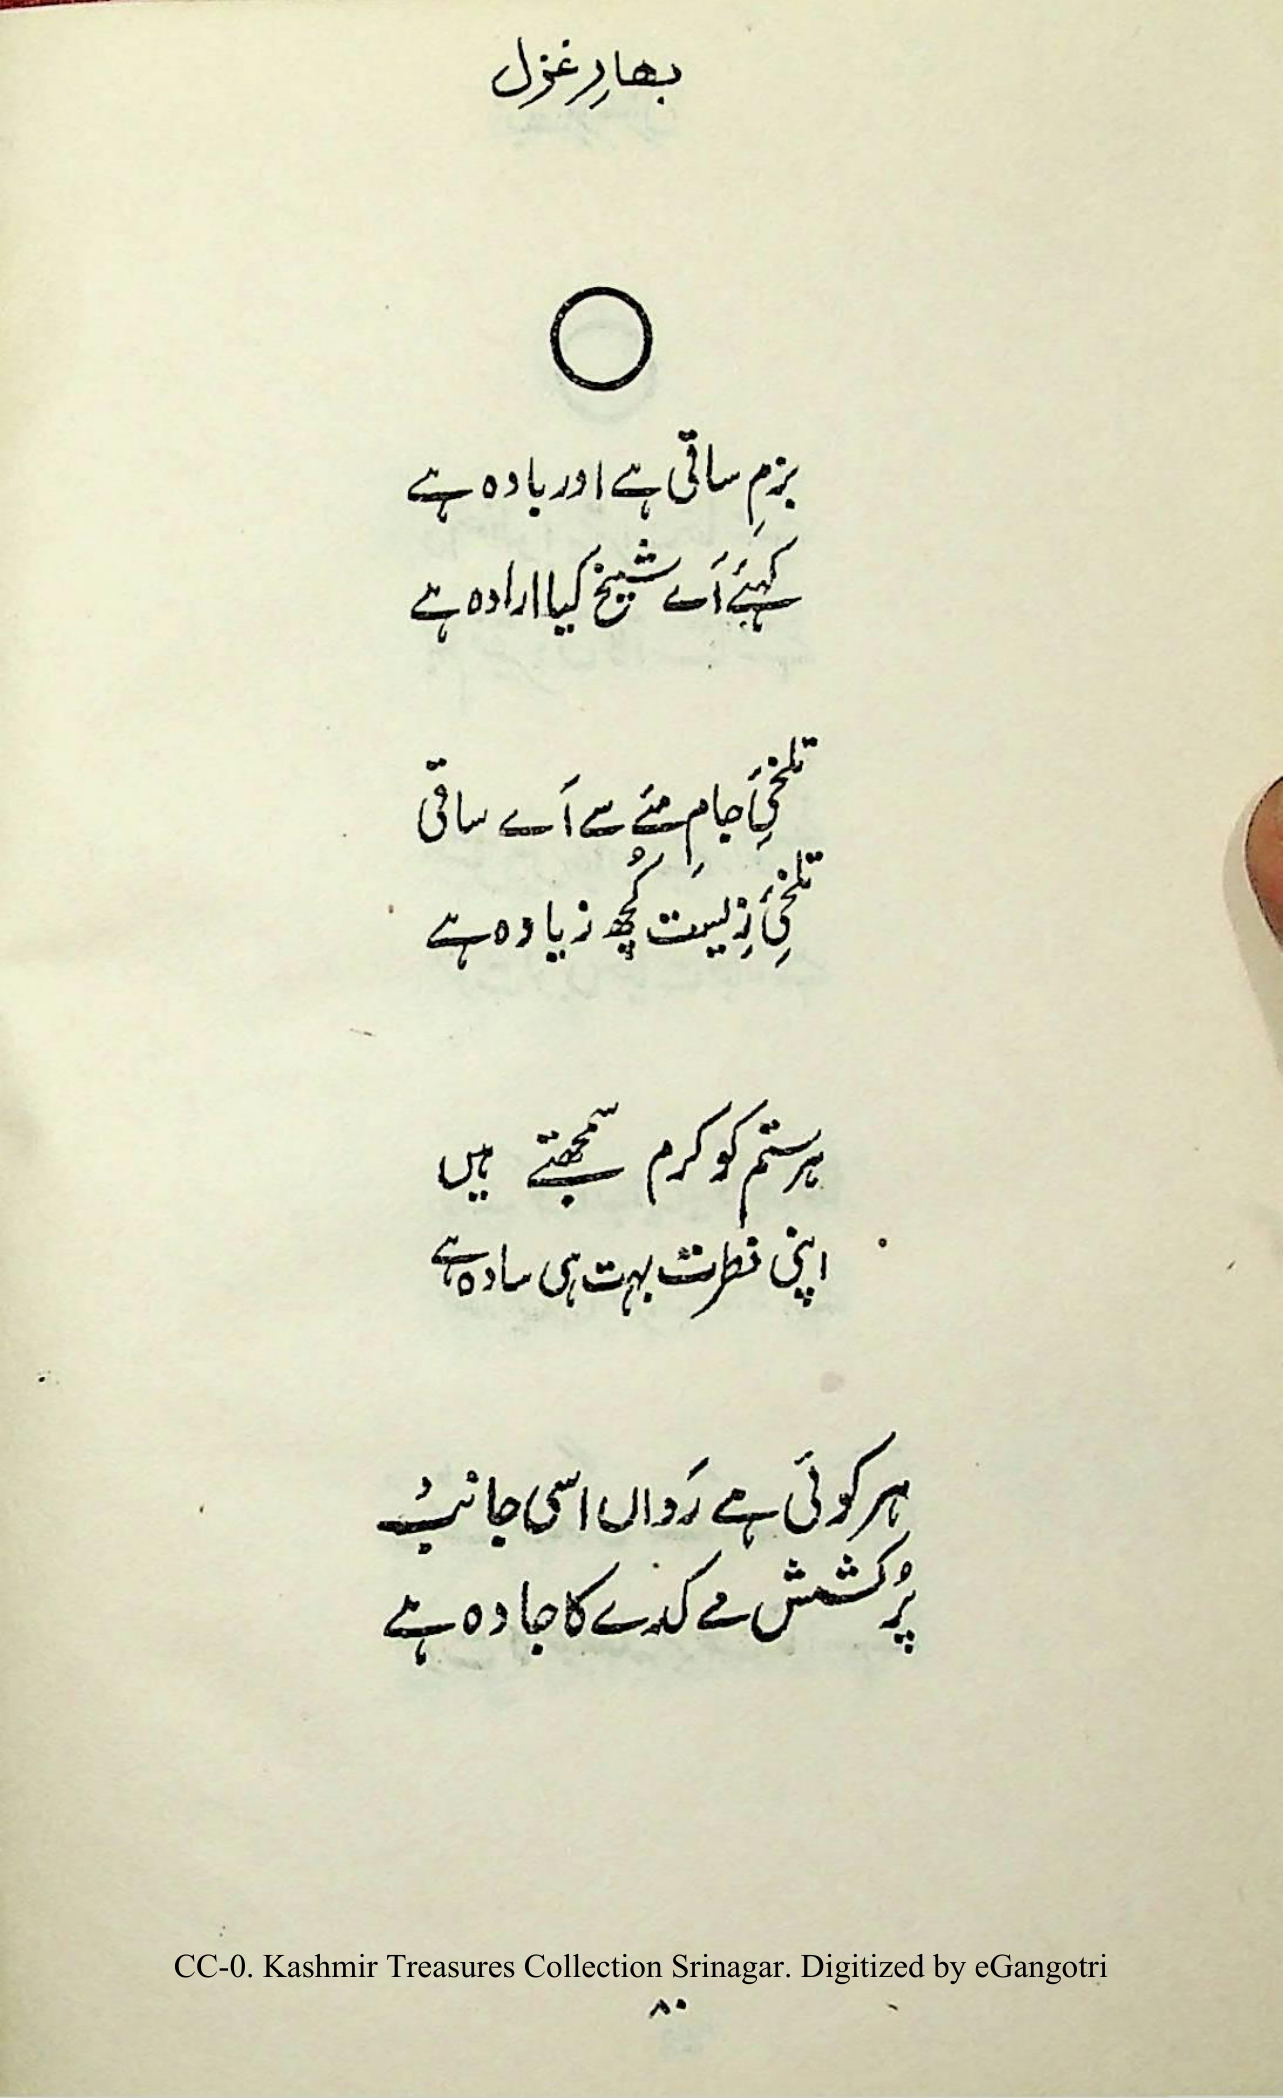 بهارِ غزل
بزمِ ساقی ہے اور بادہ ہے
کہئے اَے شیخ کیا ارادہ ہے
تلخیِٔ جامِ مئے سے اَے ساقی
تلخیِٔ زِیست کُچھ زیادہ ہے
ہر ستم کو کرم سمجھتے ہیں
اپنی فطرت بہت ہی سادہ ہے
ہر کوئی ہے رَواں اسی جانب
پُر کشش مے کدے کا جادہ ہے
CC-0. Kashmir Treasures Collection Srinagar. Digitized by eGangotri
۸۰